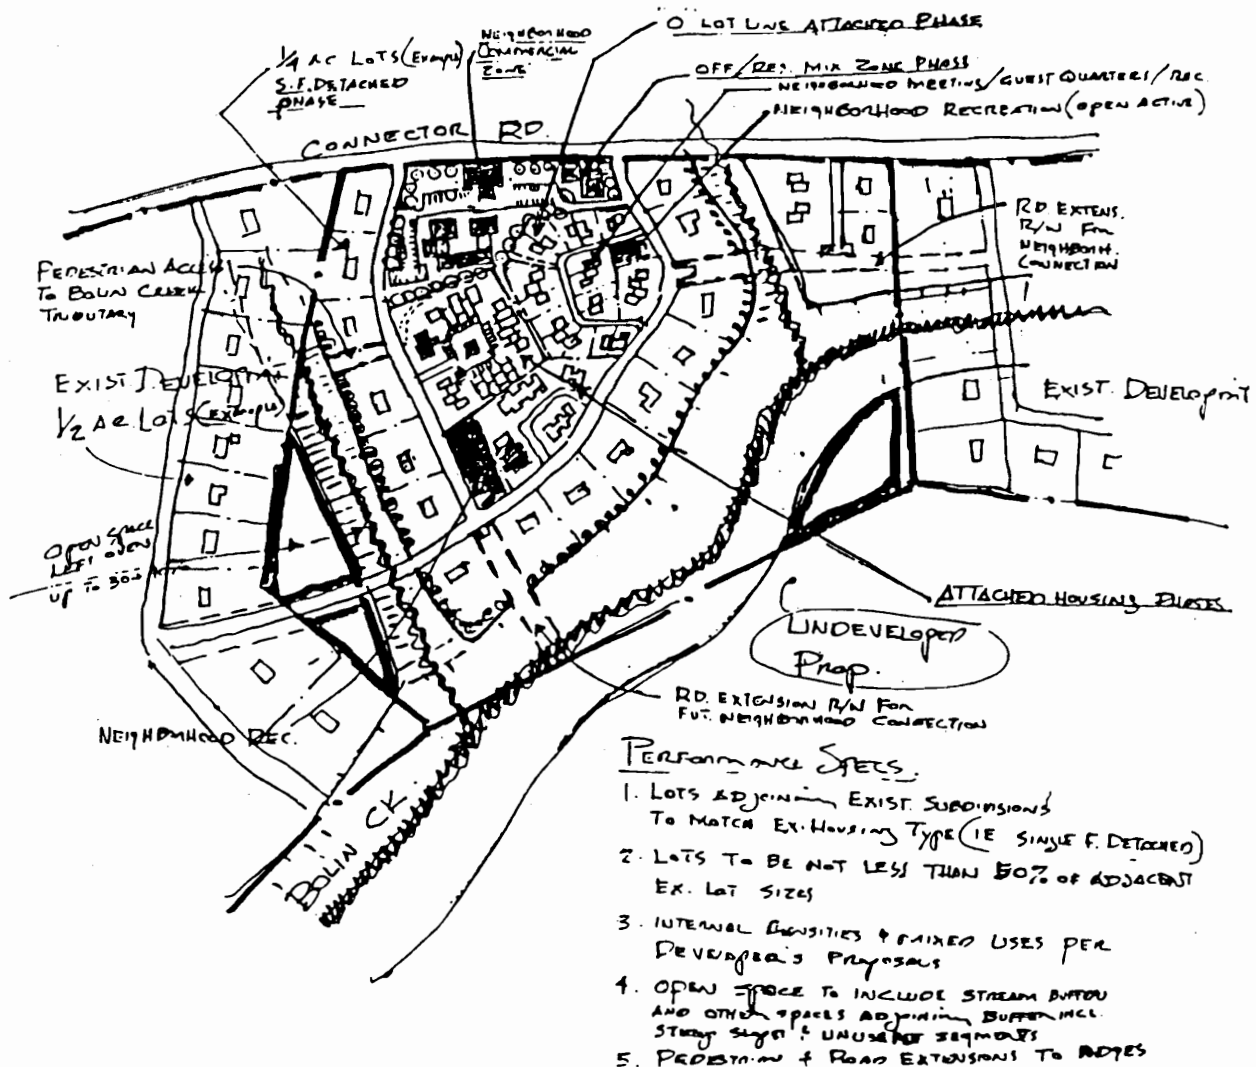 O LOT LINE ATTACHED PHASE
NEIGHBORHOOD
COMMERCIAL
ZONE
1/4 AC LOTS (Example)
S.F. DETACHED
PHASE
OFF/RES. MIX ZONE PHASE
NEIGHBORHOOD MEETING/GUEST QUARTERS/REC.
NEIGHBORHOOD RECREATION (OPEN ACTIVE)
CONNECTOR RD.
RD. EXTENS.
R/W FOR
NEIGHBORH.
CONNECTION
PEDESTRIAN ACCESS
TO BOLIN CREEK
TRIBUTARY
EXIST. DEVELOPMT
1/2 AC LOTS (Example)
EXIST. DEVELOPMT
OPEN SPACE
LEFT OPEN
UP TO
ATTACHED HOUSING PHASES
UNDEVELOPED
PROP.
RD. EXTENSION R/W FOR
FUT. NEIGHBORHOOD CONNECTION
NEIGHBORHOOD REC.
BOLIN CK.
PERFORMANCE SPECS.
1. LOTS ADJOINING EXIST. SUBDIVISIONS
TO MATCH EX. HOUSING TYPE (IE SINGLE F. DETACHED)
2. LOTS TO BE NOT LESS THAN 50% OF ADJACENT
EX. LOT SIZES
3. INTERNAL DENSITIES & MIXED USES PER
DEVELOPER'S PROPOSALS
4. OPEN SPACE TO INCLUDE STREAM BUFFER
AND OTHER SPACES ADJOINING BUFFER INCL.
STEEP SLOPES & UNUSABLE SEGMENTS
5. PEDESTRIAN & ROAD EXTENSIONS TO EDGES